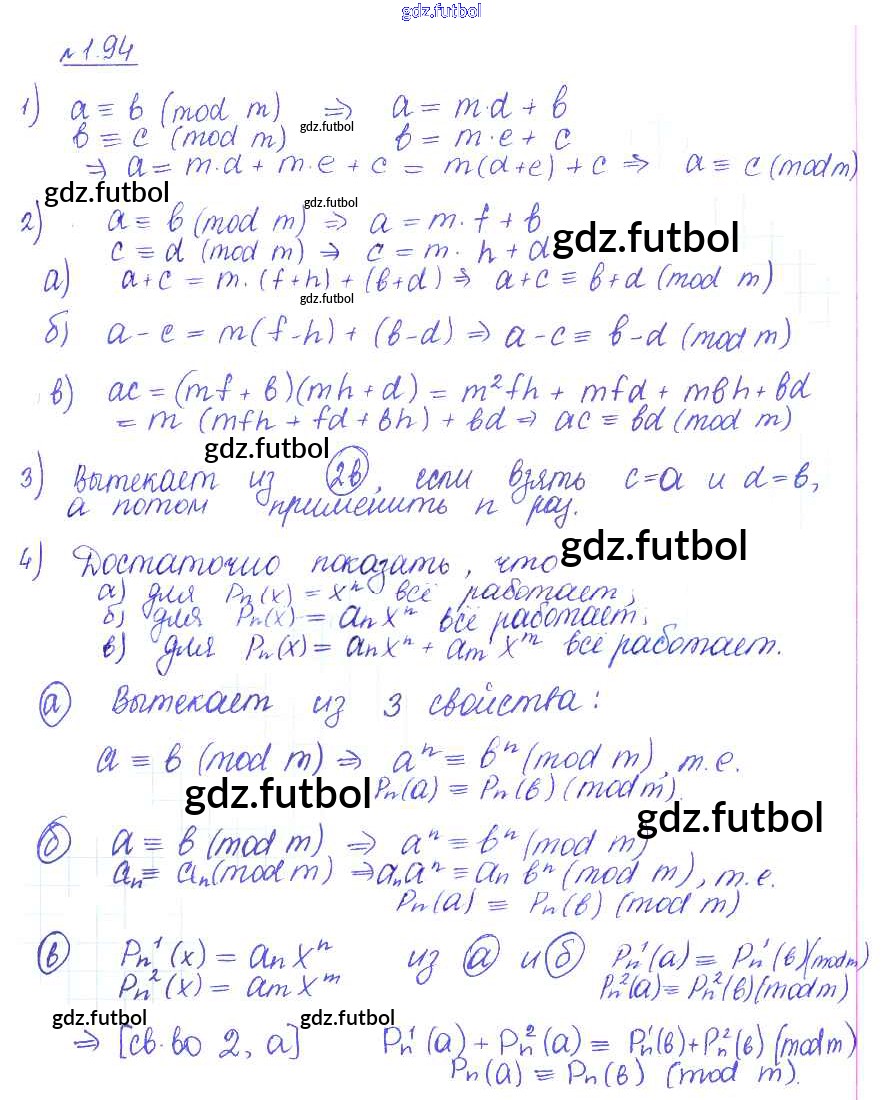 gdz.futbol
№ 1.94
1) a ≡ b (mod m) ⇒ a = m·d + b
b ≡ c (mod m) gdz.futbol b = m·e + c
⇒ a = m·d + m·e + c = m(d+e) + c ⇒ a ≡ c (mod m)
gdz.futbol gdz.futbol
2) a ≡ b (mod m) ⇒ a = m·f + b
c ≡ d (mod m) ⇒ c = m·h + d gdz.futbol
а) a+c = m·(f+h) + (b+d) ⇒ a+c ≡ b+d (mod m)
gdz.futbol
б) a-c = m(f-h) + (b-d) ⇒ a-c ≡ b-d (mod m)
в) ac = (mf + b)(mh + d) = m²fh + mfd + mbh + bd
= m (mfh + fd + bh) + bd ⇒ ac ≡ bd (mod m)
gdz.futbol
3) Вытекает из 2в, если взять c=a и d=b,
а потом применить n раз.
4) Достаточно показать, что gdz.futbol
а) для Pₙ(x) = xⁿ всё работает;
б) для Pₙ(x) = aₙxⁿ всё работает;
в) для Pₙ(x) = aₙxⁿ + aₘxᵐ всё работает.
а Вытекает из 3 свойства:
a ≡ b (mod m) ⇒ aⁿ ≡ bⁿ (mod m), т.е.
gdz.futbol Pₙ(a) ≡ Pₙ(b) (mod m).
gdz.futbol
б a ≡ b (mod m) ⇒ aⁿ ≡ bⁿ (mod m)
aₙ ≡ aₙ (mod m) ⇒ aₙaⁿ ≡ aₙ bⁿ (mod m), т.е.
Pₙ(a) ≡ Pₙ(b) (mod m)
в Pₙ¹(x) = aₙxⁿ из а и б Pₙ¹(a) ≡ Pₙ¹(b) (mod m)
Pₙ²(x) = aₘxᵐ Pₙ²(a) ≡ Pₙ²(b) (mod m)
gdz.futbol gdz.futbol
⇒ [св-во 2, а] Pₙ¹(a) + Pₙ²(a) ≡ Pₙ¹(b) + Pₙ²(b) (mod m)
Pₙ(a) ≡ Pₙ(b) (mod m).